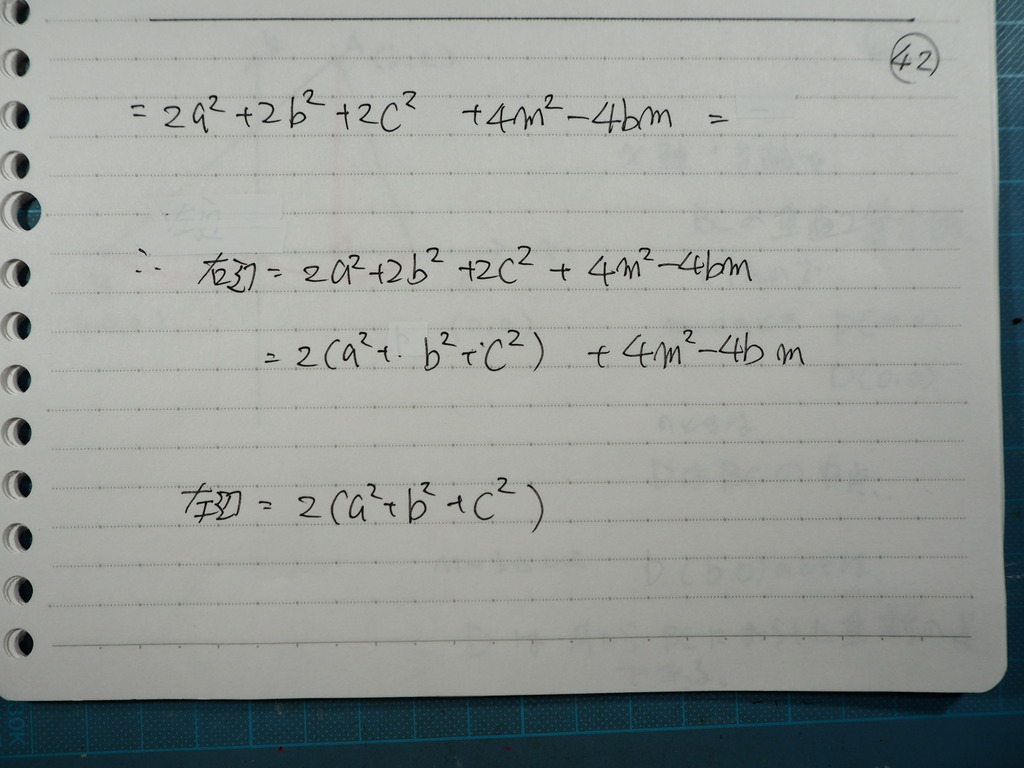 42
= 2a² + 2b² + 2c² + 4m² - 4bm =
∴ 右辺 = 2a² + 2b² + 2c² + 4m² - 4bm
= 2(a² + b² + c²) + 4m² - 4bm
左辺 = 2(a² + b² + c²)